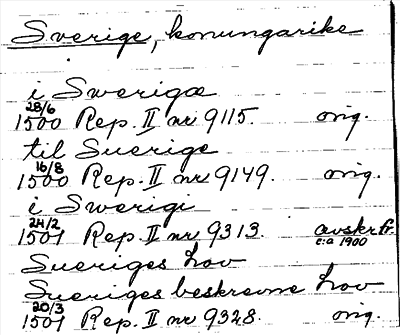 Sverige, konungarike
i Swerigæ
28/6
1500 Rep. II nr 9115. orig.
til Suerige
16/8
1500 Rep. II nr 9149. orig.
i Swerigi
24/2
1501 Rep. II nr 9313. avskr. fr.
c:a 1900
Sueriges lov
Sueriges beskrevne lov
20/3
1501 Rep. II nr 9328. orig.